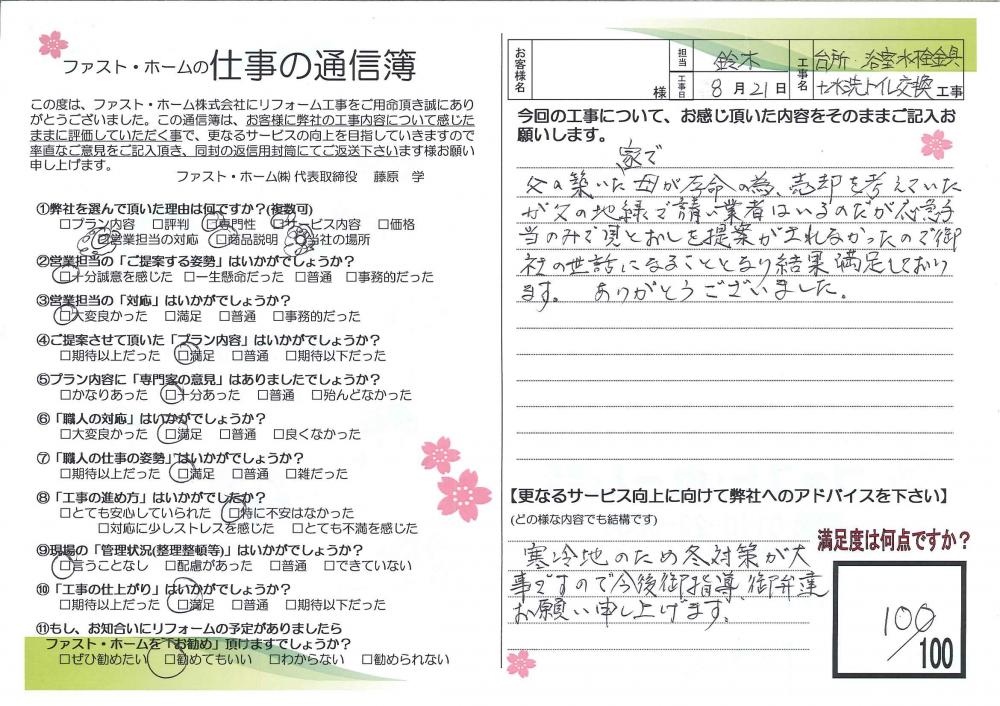 ファスト・ホームの仕事の通信簿
この度は、ファスト・ホーム株式会社にリフォーム工事をご用命頂き誠にあり
がとうございました。この通信簿は、お客様に弊社の工事内容について感じた
ままに評価していただく事で、更なるサービスの向上を目指していきますので
率直なご意見をご記入頂き、同封の返信用封筒にてご返送下さいます様お願い
申し上げます。
ファスト・ホーム㈱ 代表取締役 藤原 学
①弊社を選んで頂いた理由は何ですか?(複数可)
□プラン内容 □評判 □専門性 □サービス内容 □価格
□営業担当の対応 □商品説明 □当社の場所
②営業担当の「ご提案する姿勢」はいかがでしょうか?
□十分誠意を感じた □一生懸命だった □普通 □事務的だった
③営業担当の「対応」はいかがでしょうか?
□大変良かった □満足 □普通 □事務的だった
④ご提案させて頂いた「プラン内容」はいかがでしょうか?
□期待以上だった □満足 □普通 □期待以下だった
⑤プラン内容に「専門家の意見」はありましたでしょうか?
□かなりあった □十分あった □普通 □殆んどなかった
⑥「職人の対応」はいかがでしょうか?
□大変良かった □満足 □普通 □良くなかった
⑦「職人の仕事の姿勢」はいかがでしょうか?
□期待以上だった □満足 □普通 □雑だった
⑧「工事の進め方」はいかがでしたか?
□とても安心していられた □特に不安はなかった
□対応に少しストレスを感じた □とても不満を感じた
⑨現場の「管理状況(整理整頓等)」はいかがでしょうか?
□言うことなし □配慮があった □普通 □できていない
⑩「工事の仕上がり」はいかがでしょうか?
□期待以上だった □満足 □普通 □期待以下だった
⑪もし、お知合いにリフォームの予定がありましたら
ファスト・ホームを「お勧め」頂けますでしょうか?
□ぜひ勧めたい □勧めてもいい □わからない □勧められない
お客様名 様
担当 鈴木
工事日 8月21日
工事名 台所・浴室水栓金具
+水洗トイレ交換 工事
今回の工事について、お感じ頂いた内容をそのままご記入お
願いします。
父の築いた家で母が存命の為、売却を考えていた
が父の地縁で請い業者はいるのだが応急手
当のみで見とおしを提案がされなかったので御
社の世話になることとなり結果満足しており
ます。 ありがとうございました。
【更なるサービス向上に向けて弊社へのアドバイスを下さい】
(どの様な内容でも結構です)
寒冷地のため冬対策が大
事ですので今後御指導、御弁達
お願い申し上げます。
満足度は何点ですか?
100/100